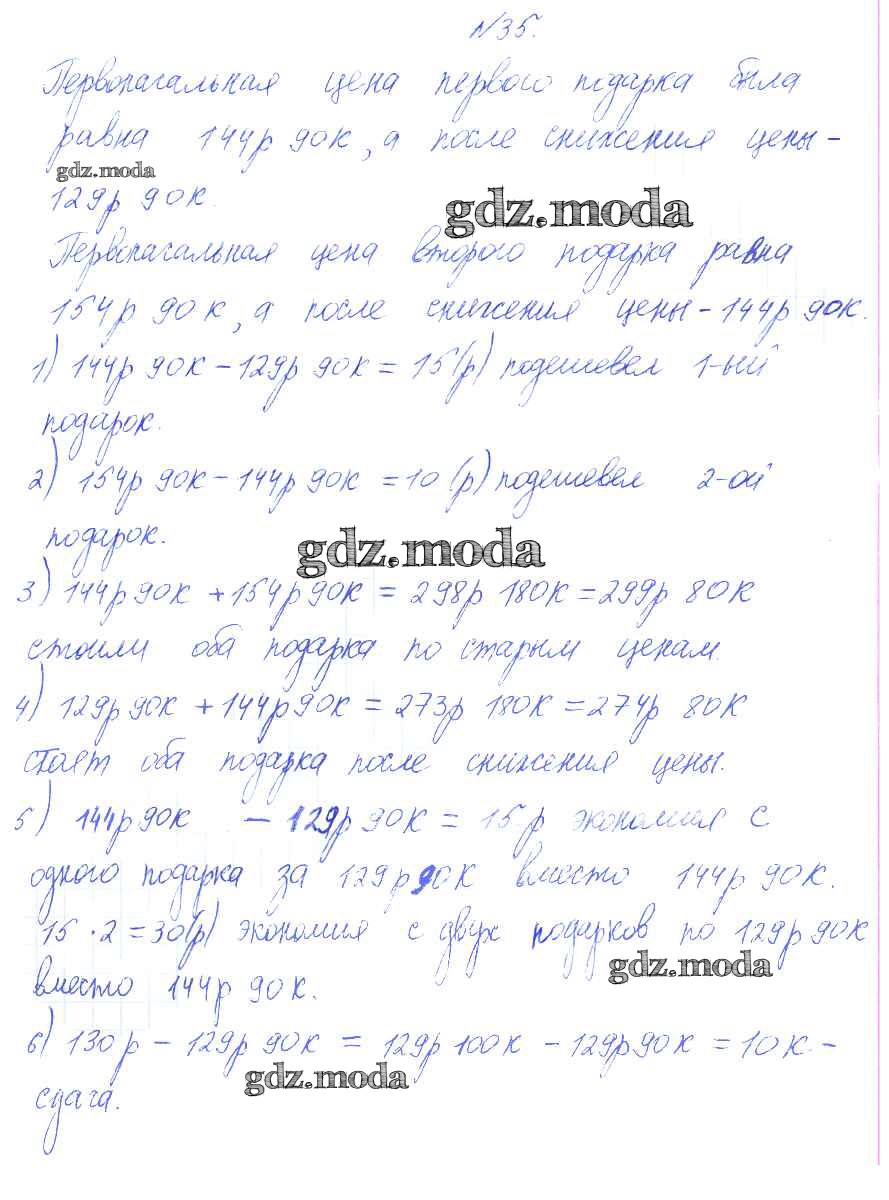 №35.
Первоначальная цена первого подарка была
равна 144р 90к, а после снижения цены -
gdz.moda
129р 90к.
gdz.moda
Первоначальная цена второго подарка равна
154р 90к, а после снижения цены - 144р 90к.
1) 144р 90к - 129р 90к = 15(р) подешевел 1-ый
подарок.
2) 154р 90к - 144р 90к = 10 (р) подешевел 2-ой
подарок.
gdz.moda
3) 144р 90к + 154р 90к = 298р 180к = 299р 80к
стоили оба подарка по старым ценам.
4) 129р 90к + 144р 90к = 273р 180к = 274р 80к
стоят оба подарка после снижения цены.
5) 144р 90к - 129р 90к = 15 р экономия с
одного подарка за 129р 90к вместо 144р 90к.
15 · 2 = 30(р) экономия с двух подарков по 129р 90к
gdz.moda
вместо 144р 90к.
6) 130р - 129р 90к = 129р 100к - 129р 90к = 10к -
gdz.moda
сдача.